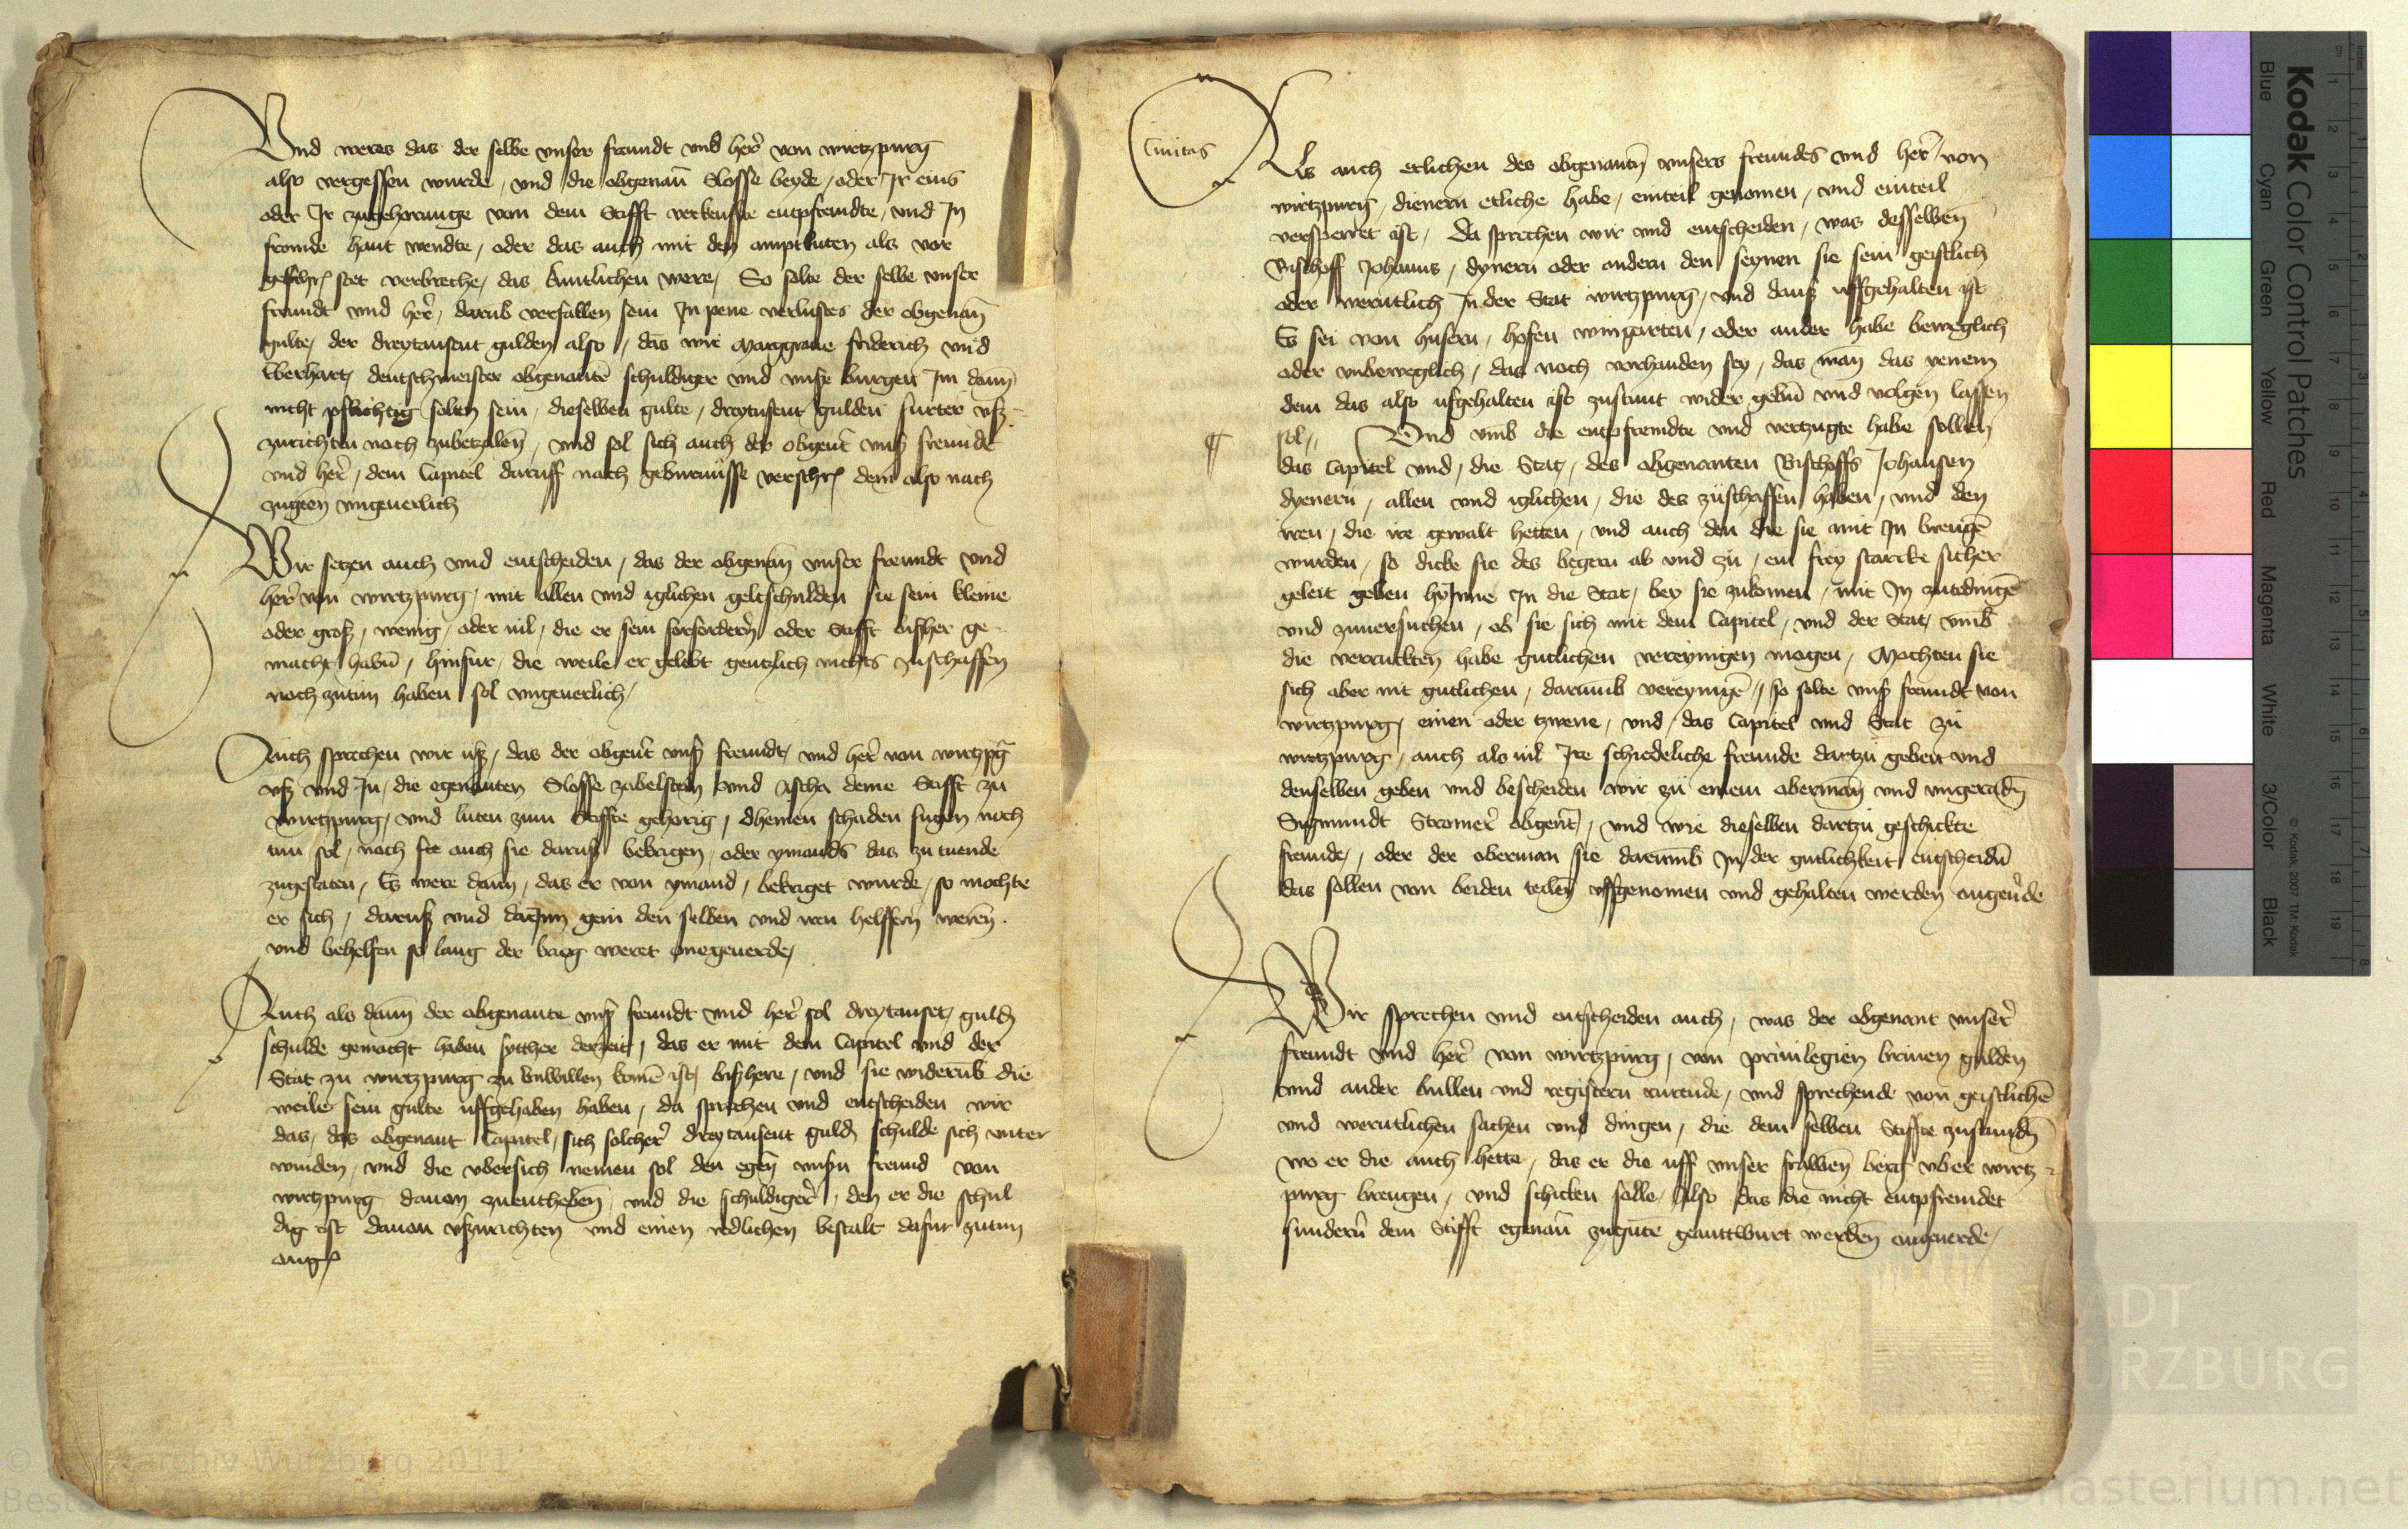 Vnd weres das der selbe vnser freundt vnd her̄ von wirtzpurg
also vergessen wurde / vnd die obgenan̄ Slosse beyde / oder Jr eins
oder Jr zugehorunge von dem Stifft verkeuffte entpfremdte / vnd Jn
fromde hant wendte / oder das auch mit den amptluten als vor
stet verbreche / das kuntlichen were / So solte der selbe vnser
freundt vnd her̄ / darub verfallen sein Jn pene verlustes der obgenan̄
gulte / der dreytausent gulden also / das wir Marggraue friderich vnd
Eberhart deutschmeister obgenante schuldiger vnd vnser burgen Jm dann
nicht pflichtig solten sein / dieselben gulte / dreytusent gulden furter vsz
zurichten noch zubetzalen / vnd sol sich auch der obgen̄t vns̄ freundt
vnd her̄ / dem Capitel daruff nach geburnusse verschr̄ dem also nach
zugeen vngeuerlich
Wir setzen auch vnd entscheiden / das der obgenan̄ vnser freundt vnd
her̄ von wirtzpurg / mit allen vnd iglichen geltschulden sie sein kleine
oder grosz / wenig / oder uil / die er sein forfordern̄ oder Stifft bisher ge
macht habn̄ / hinfur / die weile er gelebt gentzlich nichts zuschaffen
noch zutun haben sol vngeuerlich /
Auch sprechen wir usz / das der obgen̄t vns̄ freundt / vnd her̄ von wirtzpḡ
vsz vnd Jn / die egenanten Slosse zabelstein vnd Ascha deme Stifft zu
wirtzpurg / vnd luten zum Stiffte gehorig / dheinen schaden fugen noch
tun sol / noch sie auch sie darusz bekrigen / oder ymands das zu tuende
zugestaten / Es were dann / das er von ymand / bekriget wurde / so mochte
er sich / darusz vnd darjnn gein den selben vnd iren helffern weren̄ .
vnd behelfen so lang der krieg weret onegeuerde /
Auch als dann der obgenante vns̄ freundt vnd her̄ sol dreytauset guld̄
schulde gemacht haben sytther derzeit / das er mit dem Capitel vnd der
Stat zu wirtzpurg zu vnwillen kome ist / biszhere / vnd sie widerub die
weile sein gulte uffgehaben haben / da sprechen vnd entscheiden wir
das / das obgenant Capitel / sich solcher̄ dreytausent guld̄ schulde sich vnter
winden / vnd die vbersich nemen sol den egen̄ vns̄n freund von
wirtzpurg dauon zuentheben / vnd die schuldiger̄ / den er die schul
dig ist dauon vszurichten vnd einen redlichen bestalt dafur zutun
onḡ
Ciuitas
Als auch etlichen des obgenantn̄ vnsers freundes vnd her̄ / von
wirtzpurg / dienern etliche habe / einteil genomen / vnd einteil
versperret ist / Da sprechen wir vnd entscheiden / was desselben
Bischoff Johanns / dynern oder andern den seynen sie sein geistlich
oder werntlich Jn der Stat wirtzpurg / vnd dausz uffgehalten ist
Es sei von husern / hofen wingarten / oder ander habe beweglich
oder vnbeweglich / das noch vorhanden sey / das man das yenem
dem das also ufgehalten ist zustunt wider gebn̄ vnd volgen lassen
sol // Vnd vmb die entpfremdte vnd vertzugte habe sollen
das Capitel vnd / die Stat / des obgenanten Bischoffs Johansen
dyenern / allen vnd iglichen / die des zuschaffen haben / vnd den
iren / die ire gewalt hetten / vnd auch den die sie mit Jn brengē
wurden / so dicke sie des begern ab vnd zu / ein frey starcke sicher
geleit geben hyJnne Jn die Stat / bey sie zukomen / mit Jn zuteidingē
vnd zuuersuchen / ob sie sich mit dem Capitel / vnd der Stat / vmb
die verruckten habe gutlichen vereynigen mogen / Mochten sie
sich aber nit gutlichen / darumb vereynigē / so solte vns̄ freundt von
wirtzpurg / einen oder tzwene / vnd / das Capitel vnd Stat zu
wirtzpurg / auch als uil Jre schiedeliche freunde dartzu geben vnd
denselben geben vnd bescheiden wir zu einem oberman̄ vnd vngeradn̄
Sigmundt Stromer̄ obgen̄t / vnd wie dieselben dartzu geschickte
freunde / oder der oberman sie darumb Jn der gutlichkeit entscheidn̄
das sollen von beiden teilen̄ uffgenomen vnd gehalten werden ongeu̅de
Wir sprechen vnd entscheiden auch / was der obgenant vnser̄
freundt vnd her̄ von wirtzpurg / von priuilegien brieuen gulden
vnd ander bullen vnd registern rurende / vnd sprechende von geistlichē
vnd werntlichen sachen vnd dingen / die dem selben Stiffte zustundn̄
wo er die auch hette / das er die uff vnser frawen̄ berg vber wirtz
purg brengen / vnd schicken solle / Also das die nicht entpfremdet
sundern̄ dem Stifft egenan̄ zugute geanttwurt werden̄ ongeuerde /
Kodak Color Control Patches
Blue Cyan Green Yellow Red Magenta White 3/Color Black
© Kodak, 2007 TM: Kodak
STADT
WÜRZBURG
© Stadtarchiv Würzburg 2011
monasterium.net